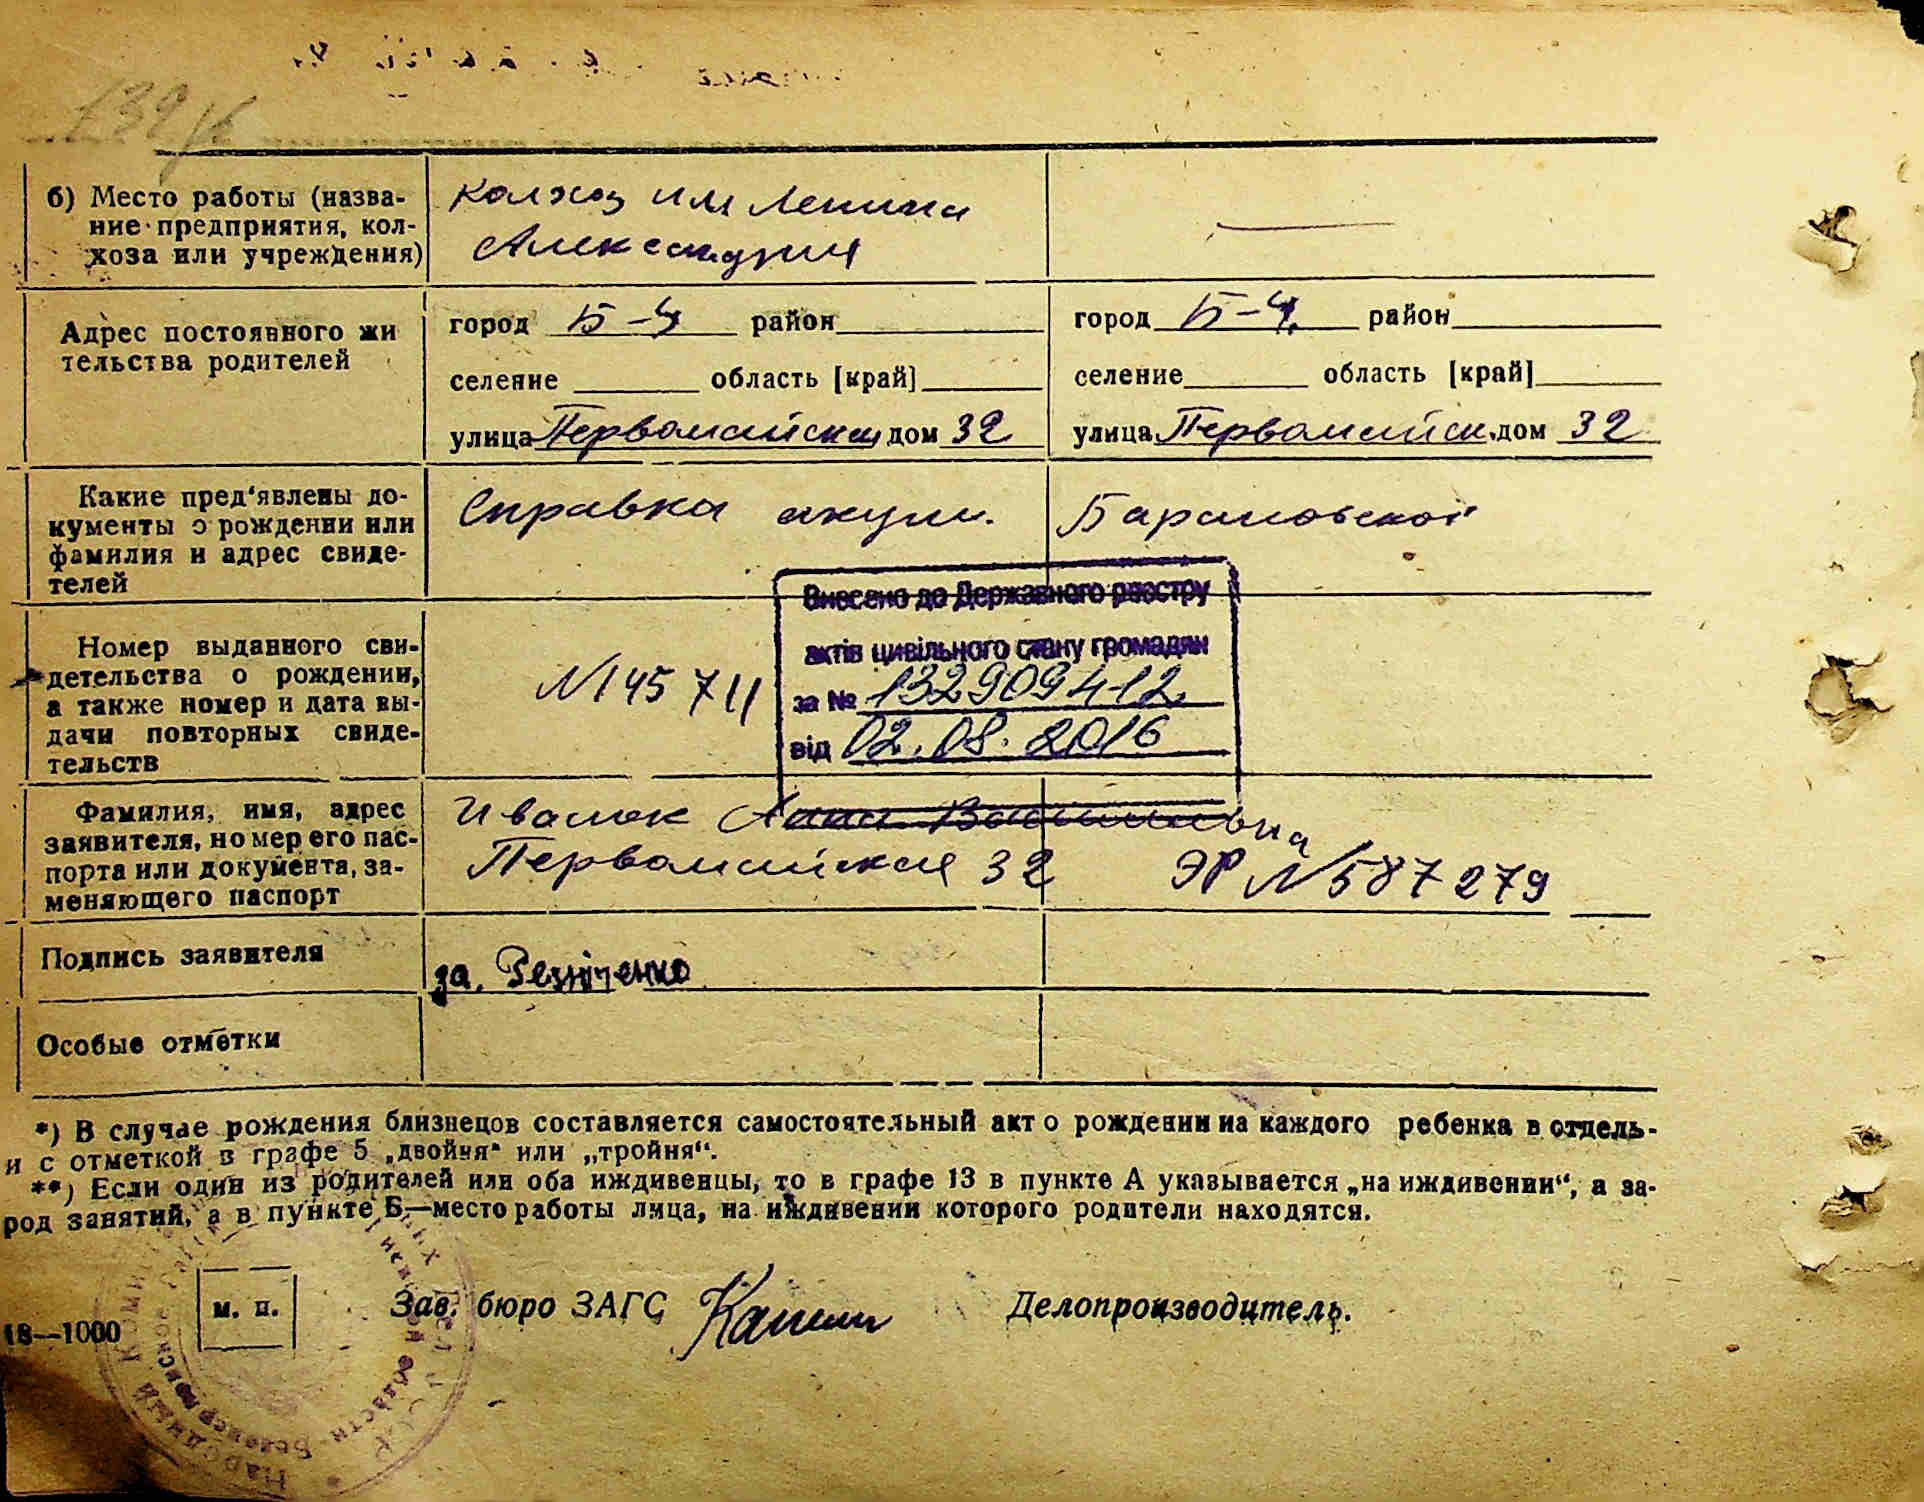 б) Место работы (назва-
ние предприятия, кол-
хоза или учреждения)
колхоз им Ленина
Александрия
Адрес постоянного жи
тельства родителей
город Б-Ц район
селение область [край]
улица Первомайская дом 32
город Б-Ц. район
селение область [край]
улица Первомайск. дом 32
Какие пред'явлены до-
кументы о рождении или
фамилия и адрес свиде-
телей
Справка акуш. Барановской
Внесено до Державного реєстру
актів цивільного стану громадян
за № 13290941-12
від 02.08.2016
Номер выданного сви-
детельства о рождении,
а также номер и дата вы-
дачи повторных свиде-
тельств
N145711
Фамилия, имя, адрес
заявителя, номер его пас-
порта или документа, за-
меняющего паспорт
Анна Васильевна
Первомайская 32 ЭР N587279
Подпись заявителя
за. Резніченко
Особые отметки
*) В случае рождения близнецов составляется самостоятельный акт о рождении на каждого ребенка в отдель-
и с отметкой в графе 5 „двойня“ или „тройня“.
**) Если один из родителей или оба иждивенцы, то в графе 13 в пункте А указывается „на иждивении“, а за-
род занятий, а в пункте Б—место работы лица, на иждивении которого родители находятся.
м. п.
Зав. бюро ЗАГС
Делопроизводитель.
18—1000